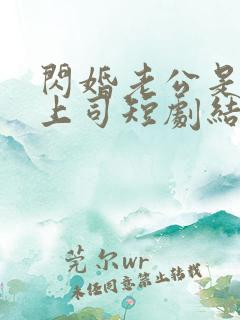 閃婚老公是
上司短劇結
莞尔wr
未任同意禁止转载